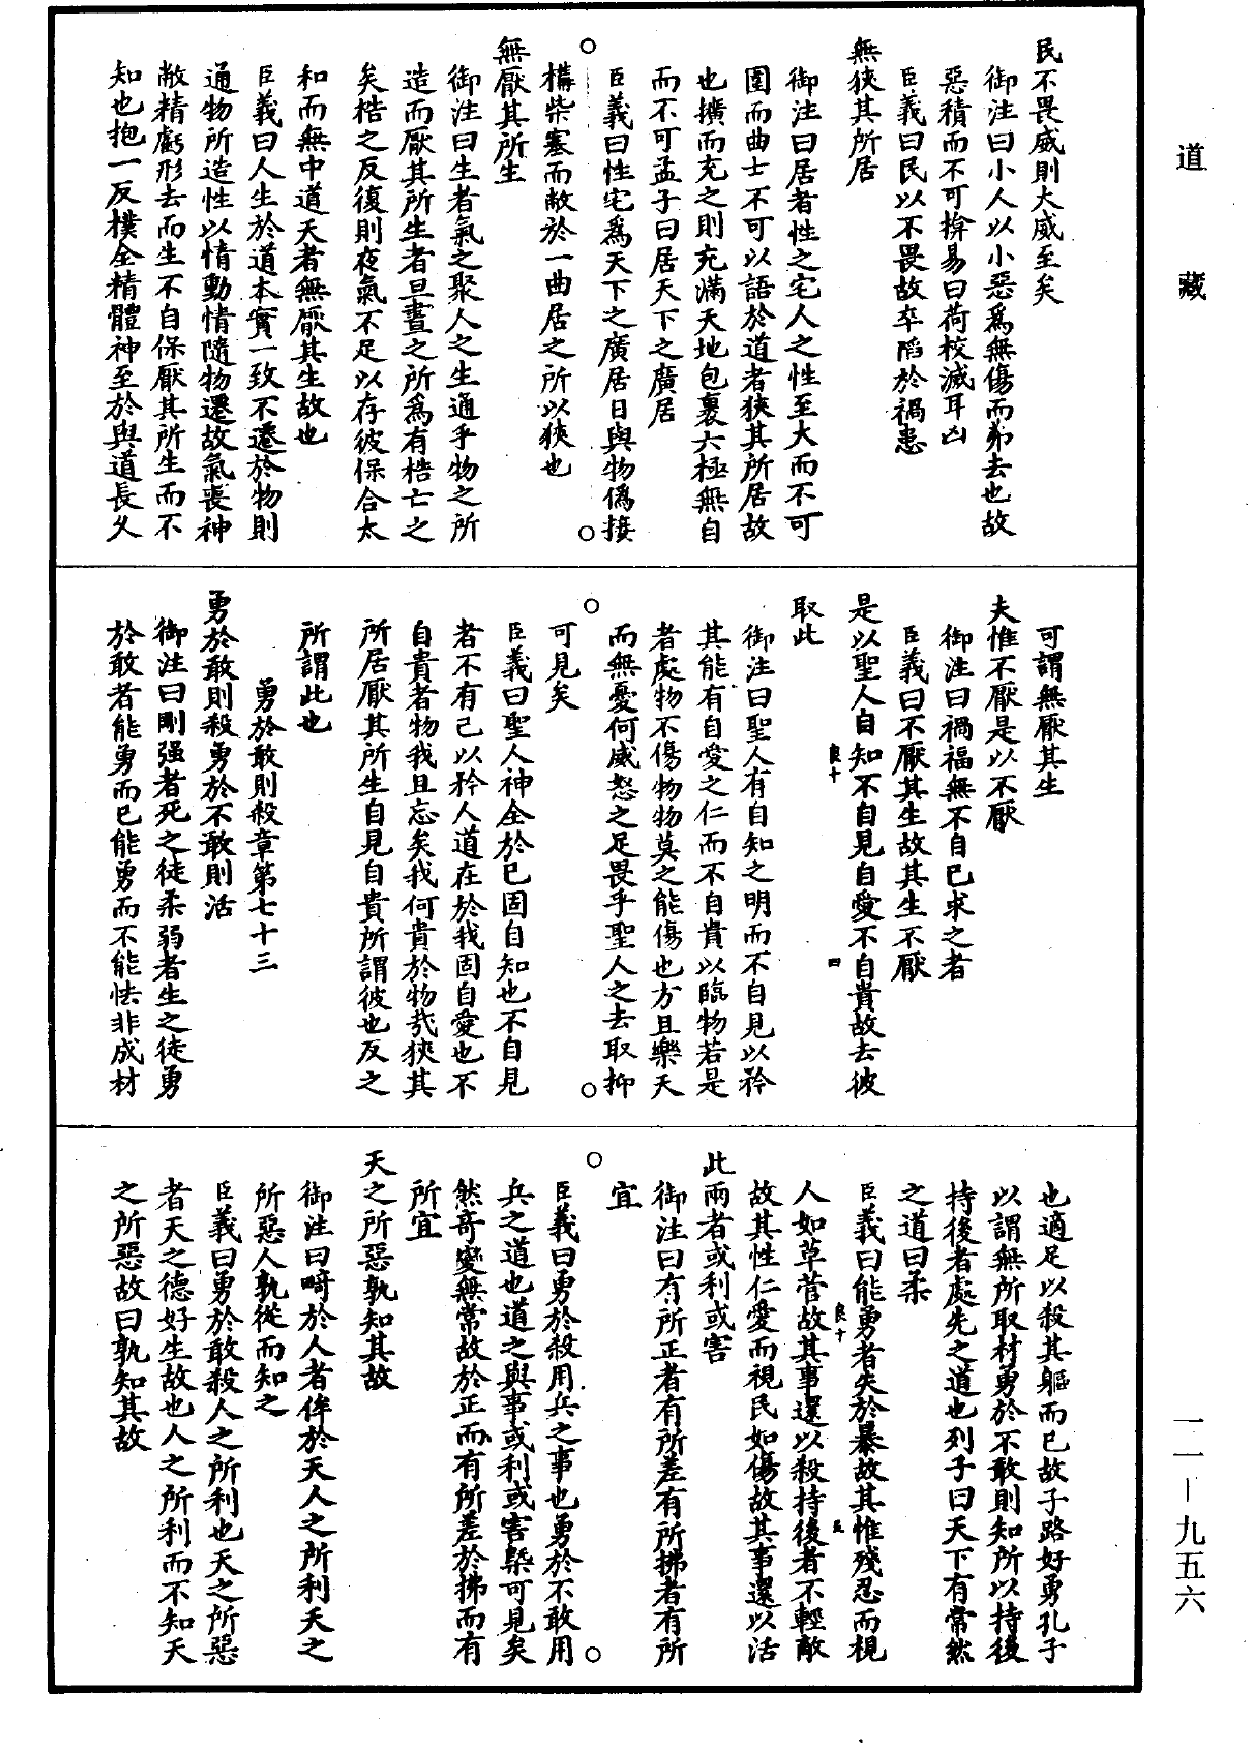 道藏
民不畏威則大威至矣
御注曰小人以小惡爲無傷而弗去也故
惡積而不可揜易曰荷校滅耳凶
臣義曰民以不畏故卒陷於禍患
無狹其所居
御注曰居者性之宅人之性至大而不可
圍而曲士不可以語於道者狹其所居故
也擴而充之則充滿天地包裹六極無自
而不可孟子曰居天下之廣居
臣義曰性宅爲天下之廣居日與物僞接
構柴塞而敝於一曲居之所以狹也
無厭其所生
御注曰生者氣之聚人之生通乎物之所
造而厭其所生者旦晝之所爲有梏亡之
矣梏之反復則夜氣不足以存彼保合太
和而無中道夭者無厭其生故也
臣義曰人生於道本實一致不遷於物則
通物所造性以情動情隨物遷故氣喪神
敝精虧形去而生不自保厭其所生而不
知也抱一反樸全精體神至於與道長久
可謂無厭其生
夫惟不厭是以不厭
御注曰禍福無不自己求之者
臣義曰不厭其生故其生不厭
是以聖人自知不自見自愛不自貴故去彼
良十 四
取此
御注曰聖人有自知之明而不自見以矜
其能有自愛之仁而不自貴以臨物若是
者處物不傷物物莫之能傷也方且樂天
而無憂何威怒之足畏乎聖人之去取抑
可見矣
臣義曰聖人神全於己固自知也不自見
者不有己以矜人道在於我固自愛也不
自貴者物我且忘矣我何貴於物哉狹其
所居厭其所生自見自貴所謂彼也反之
所謂此也
勇於敢則殺章第七十三
勇於敢則殺勇於不敢則活
御注曰剛强者死之徒柔弱者生之徒勇
於敢者能勇而已能勇而不能怯非成材
也適足以殺其軀而已故子路好勇孔子
以謂無所取材勇於不敢則知所以持後
持後者處先之道也列子曰天下有常然
之道曰柔
臣義曰能勇者失於暴故其惟殘忍而視
良十 五
人如草菅故其事還以殺持後者不輕敵
故其性仁愛而視民如傷故其事還以活
此兩者或利或害
御注曰有所正者有所差有所拂者有所
宜
臣義曰勇於殺用兵之事也勇於不敢用
兵之道也道之與事或利或害槩可見矣
然奇變無常故於正而有所差於拂而有
所宜
天之所惡孰知其故
御注曰畸於人者侔於天人之所利天之
所惡人孰從而知之
臣義曰勇於敢殺人之所利也天之所惡
者天之德好生故也人之所利而不知天
之所惡故曰孰知其故
一一－九五六